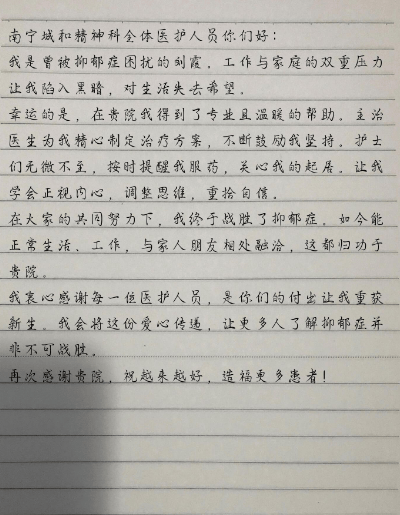 南宁城和精神科全体医护人员你们好：
我是曾被抑郁症困扰的刘霞，工作与家庭的双重压力
让我陷入黑暗，对生活失去希望。
幸运的是，在贵院我得到了专业且温暖的帮助。主治
医生为我精心制定治疗方案，不断鼓励我坚持。护士
们无微不至，按时提醒我服药，关心我的起居。让我
学会正视内心，调整思维，重拾自信。
在大家的共同努力下，我终于战胜了抑郁症。如今能
正常生活、工作，与家人朋友相处融洽，这都归功于
贵院。
我衷心感谢每一位医护人员，是你们的付出让我重获
新生。我会将这份爱心传递，让更多人了解抑郁症并
非不可战胜。
再次感谢贵院，祝越来越好，造福更多患者！